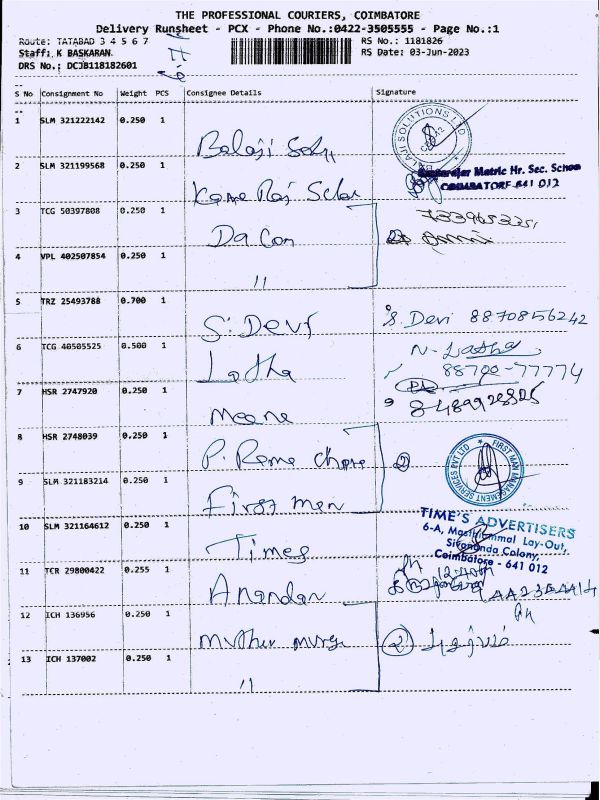 THE PROFESSIONAL COURIERS, COIMBATORE
Delivery Runsheet - PCX - Phone No.:0422-3505555 - Page No.:1
Route: TATABAD 3 4 5 6 7
Staff: K BASKARAN
DRS No.: DCJB118182601
RS No.: 1181826
RS Date: 03-Jun-2023
S No Consignment No Weight PCS Consignee Details Signature
1 SLM 321222142 0.250 1
Balaji Soln
BALAJI SOLUTIONS LTD
2 SLM 321199568 0.250 1
Kama Raj
Matric Hr. Sec. School
COIMBATORE-641 012
3 TCG 50397808 0.250 1
Da Con
4 VPL 402507854 0.250 1
"
5 TRZ 25493788 0.700 1
S. Devi
S. Devi 8870856242
6 TCG 40505525 0.500 1
Latha
N. Latha
88700-77774
7 HSR 2747920 0.250 1
Meena
8 HSR 2748039 0.250 1
P. Rama
2
9 SLM 321183214 0.250 1
First Man
FIRST MAN MANAGEMENT SERVICES PVT LTD
10 SLM 321164612 0.250 1
Times
TIME'S ADVERTISERS
6-A, Lay-Out,
Sivananda Colony,
Coimbatore - 641 012
11 TCR 29800422 0.255 1
Anandan
12 ICH 136956 0.250 1
Muthu
2
13 ICH 137002 0.250 1
"